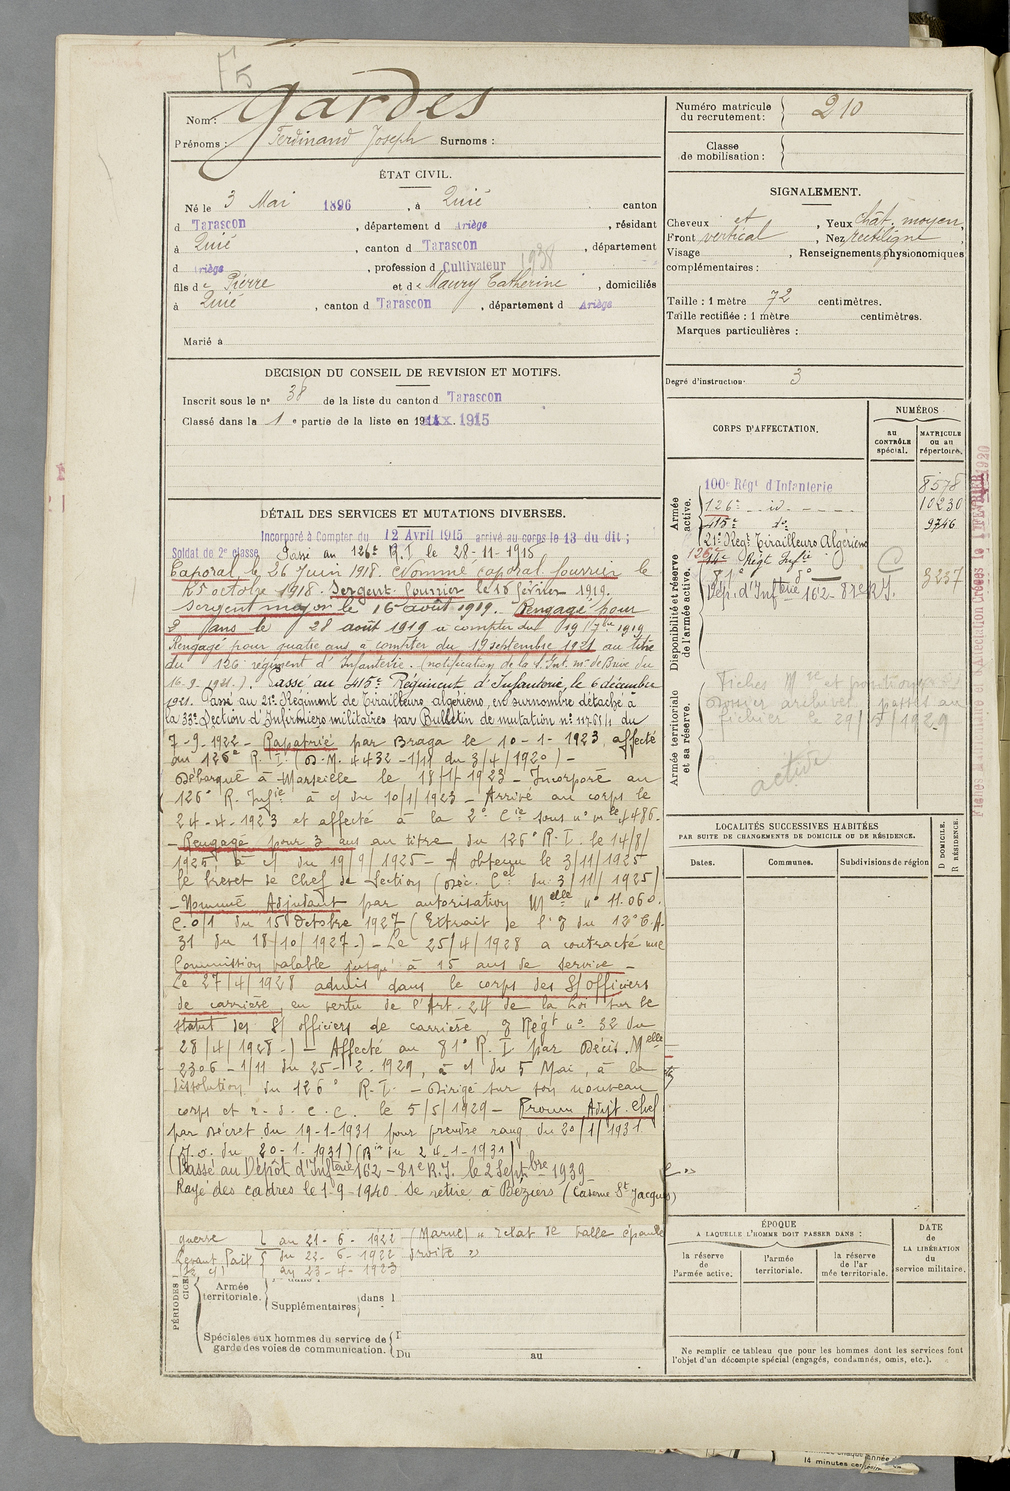 F 5
Nom : Gardes
Prénoms : Ferdinand Joseph Surnoms :
Numéro matricule du recrutement : 210
Classe de mobilisation :
ÉTAT CIVIL.
Né le 3 Mai 1896, à Quié canton
d Tarascon, département d Ariège, résidant
à Quié, canton d Tarascon, département
d Ariège, profession d Cultivateur 1938
fils de Pierre et de Maury Catherine, domiciliés
à Quié, canton d Tarascon, département d Ariège
Marié à
SIGNALEMENT.
Cheveux et, Yeux chât. moyen,
Front vertical, Nez rectiligne,
Visage, Renseignements physionomiques
complémentaires :
Taille : 1 mètre 72 centimètres.
Taille rectifiée : 1 mètre centimètres.
Marques particulières :
Degré d'instruction. 3
DÉCISION DU CONSEIL DE REVISION ET MOTIFS.
Inscrit sous le n° 38 de la liste du canton d Tarascon
Classé dans la 1 e partie de la liste en 1915
CORPS D'AFFECTATION.
NUMÉROS
au CONTRÔLE spécial.
MATRICULE ou au répertoire.
Armée active.
100e Régt d'Infanterie 8578
126e _ id _ 10230
415e do 9746
21e Regt Tirailleurs Algériens
Disponibilité et réserve de l'armée active.
126e Régt Infie C
81e do 3237
Dép. d'Infterie 162 - 81e R.I.
Armée territoriale et sa réserve.
Fiches Mle et positions
Dossier archives passés au
fichier le 29/ /1929
active
DÉTAIL DES SERVICES ET MUTATIONS DIVERSES.
Incorporé à Compter du 12 Avril 1915 arrivé au corps le 13 du dit ;
Soldat de 2e classe Passé au 126e R.I. le 28-11-1915
Caporal, le 26 Juin 1918. Nommé caporal fourrier le
25 octobre 1918. Sergent fourrier le 16 février 1919.
Sergent major le 16 août 1919. Rengagé pour
2 ans le 28 août 1919 à compter du 19 7bre 1919
Rengagé pour quatre ans à compter du 19 septembre 1921 au titre
du 126 régiment d'Infanterie. (notification de la S. Int. mre de Brive du
16.9.1921.). Passé au 415e Régiment d'Infanterie, le 6 décembre
1921. Passé au 21e Régiment de Tirailleurs algériens, est surnombre détaché à
la 33e Section d'Infirmiers militaires par Bulletin de mutation n° 117-61/1 du
7-9-1922 - Rapatrié par Braga le 10-1-1923, affecté
au 126e R.I. (D.M. 4432-1/11 du 3/4/1920) -
Débarqué à Marseille le 18/1/1923 - Incorporé au
126e R. Infie à c/ du 10/1/1923 - Arrivé au corps le
24-4-1923 et affecté à la 2e Cie sous n° mle 4486.
- Rengagé pour 3 ans au titre du 126e R.I. le 14/8/
1925 à c/ du 19/9/1925 - A obtenu le 3/11/1925
le brevet de Chef de Section (Déc. Cel du 3/11/1925)
- Nommé Adjudant par autorisation Melle n° 11.060.
C.0/1 du 15 Octobre 1927 (Extrait de l'O du 12e C.A.
31 du 18/10/1927-) - Le 25/4/1928 a contracté une
Commission valable jusqu'à 15 ans de service -
Le 27/4/1928 admis dans le corps des S/Officiers
de carrière en vertu de l'Art. 24 de la Loi sur le
statut des S/officiers de carrière, O Régt n° 32 du
28/4/1928-) - Affecté au 81e R.I. par Décis. Melle
2306-1/11 du 25-2-1929, à c/ du 5 Mai, à la
dissolution du 126e R.I. - Dirigé sur son nouveau
corps et r.d.c.c. le 5/5/1929 - Promu Adjt. Chef
par Décret du 19-1-1931 pour prendre rang du 20/1/1931
(J.O. du 20-1-1931)(Bin du 24-1-1931)
Passé au Dépôt d'Infterie 162 - 81e R.I. le 2 Septbre 1939
Rayé des cadres le 1-9-1940 Se retire à Béziers (Caserne St Jacques)
LOCALITÉS SUCCESSIVES HABITÉES
PAR SUITE DE CHANGEMENTS DE DOMICILE OU DE RÉSIDENCE.
Dates. Communes. Subdivisions de région
D DOMICILE.
R RÉSIDENCE.
guerre au 21-6-1922 (Marne) " Eclat de balle épaule
Levant Paix du 22-6-1922 droite "
au 23-4-1923
PÉRIODES
Armée territoriale.
Supplémentaires dans l
Spéciales aux hommes du service de
garde des voies de communication.
Du au
ÉPOQUE
A LAQUELLE L'HOMME DOIT PASSER DANS :
la réserve de l'armée active.
l'armée territoriale.
la réserve de l'armée territoriale.
DATE DE LA LIBÉRATION du service militaire.
Ne remplir ce tableau que pour les hommes dont les services font
l'objet d'un décompte spécial (engagés, condamnés, omis, etc.).
14 minutes